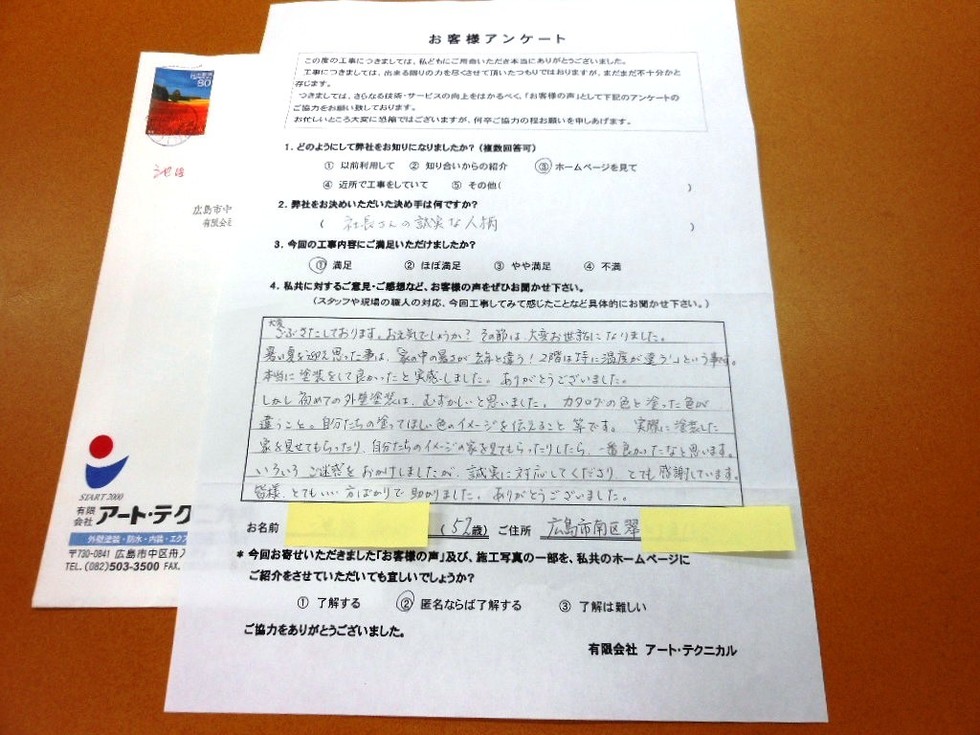 お客様アンケート
この度の工事につきましては、私どもにご用命いただき本当にありがとうございました。
工事につきましては、出来る限りの力を尽くさせて頂いたつもりではおりますが、まだまだ不十分かと
存じます。
つきましては、さらなる技術・サービスの向上をはかるべく、「お客様の声」として下記のアンケートの
ご協力をお願い致しております。
お忙しいところ大変に恐縮ではございますが、何卒ご協力の程お願いを申しあげます。
1．どのようにして弊社をお知りになりましたか？（複数回答可）
① 以前利用して ② 知り合いからの紹介 ③ ホームページを見て
④ 近所で工事をしていて ⑤ その他( )
2．弊社をお決めいただいた決め手は何ですか？
( 社長さんの誠実な人柄 )
3．今回の工事内容にご満足いただけましたか？
① 満足 ② ほぼ満足 ③ やや満足 ④ 不満
4．私共に対するご意見・ご感想など、お客様の声をぜひお聞かせ下さい。
（スタッフや現場の職人の対応、今回工事してみて感じたことなど具体的にお聞かせ下さい。）
大変
ごぶさたしております。お元気でしょうか？ その節は大変お世話になりました。
暑い夏を迎え思った事は、「家の中の暑さが去年と違う！2階は特に温度が違う！」という事です。
本当に塗装をして良かったと実感しました。ありがとうございました。
しかし初めての外壁塗装は、むずかしいと思いました。カタログの色と塗った色が
違うこと。自分たちの塗ってほしい色のイメージを伝えること等です。実際に塗装した
家を見せてもらったり、自分たちのイメージの家を見てもらったりしたら、一番良かったなと思います。
いろいろご迷惑をおかけしましたが、誠実に対応してくださり、とても感謝しています。
皆様、とてもいい方ばかりで助かりました。ありがとうございました。
お名前 (52歳) ご住所 広島市南区翠
* 今回お寄せいただきました「お客様の声」及び、施工写真の一部を、私共のホームページに
ご紹介をさせていただいても宜しいでしょうか？
① 了解する ② 匿名ならば了解する ③ 了解は難しい
ご協力をありがとうございました。
有限会社 アート・テクニカル
80
広島市中
有限会
START 2000
有限
会社 アート・テク
外壁塗装・防水・内装・エクス
〒730-0841 広島市中区舟入
TEL. (082)503-3500 FAX.